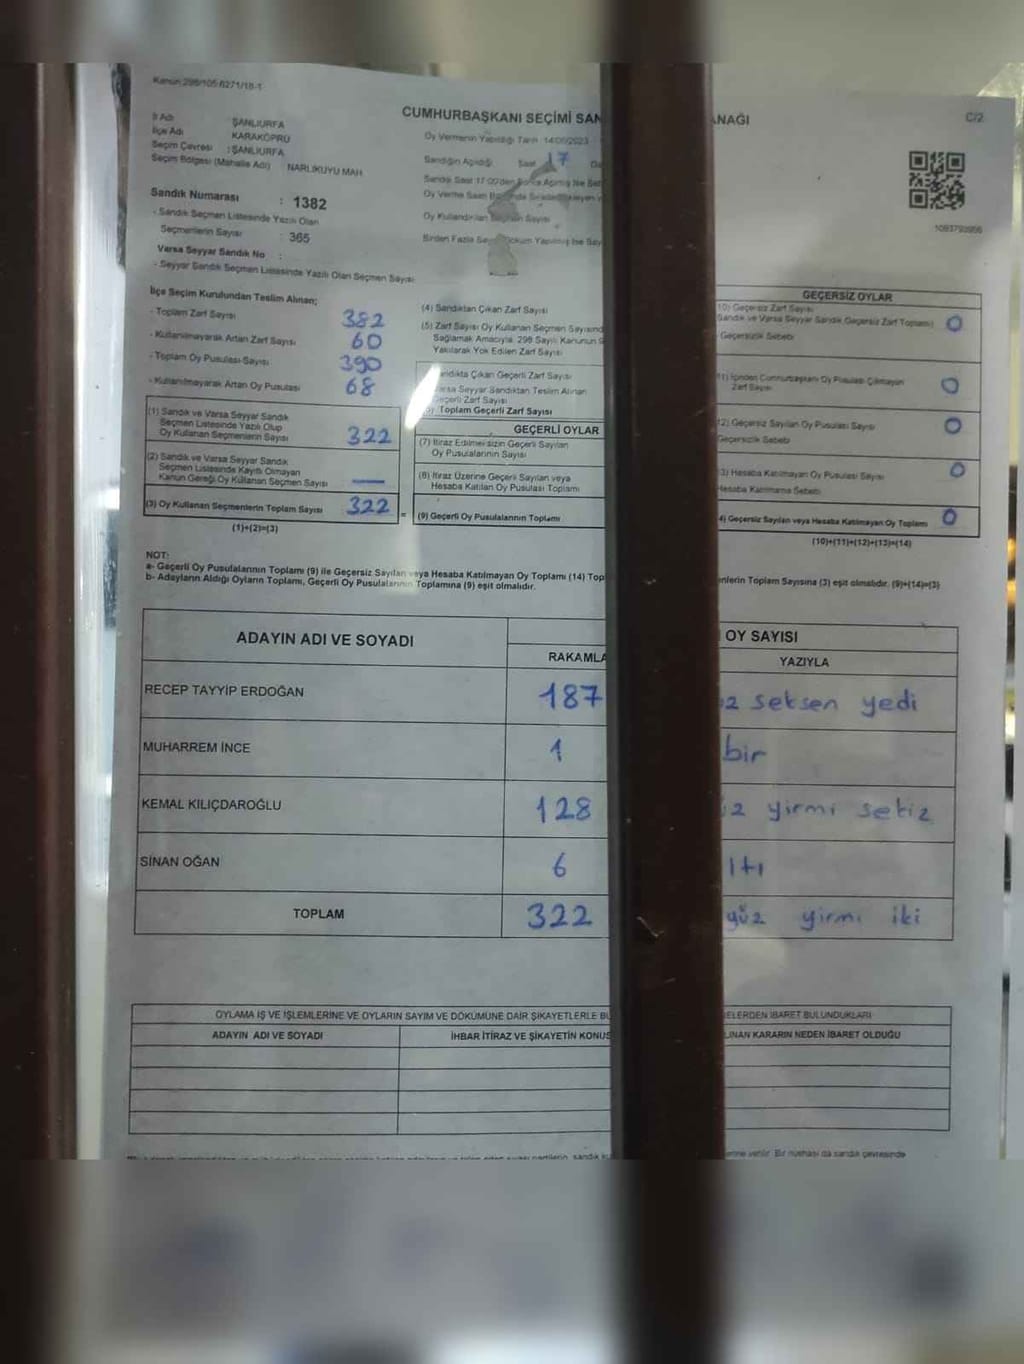 Kanun:298/105-6271/18-1
CUMHURBAŞKANI SEÇİMİ SAN
ANAĞI
C/2
İl Adı ŞANLIURFA
İlçe Adı KARAKÖPRÜ
Seçim Çevresi : ŞANLIURFA
Seçim Bölgesi (Mahalle Adı) NARLIKUYU MAH
Sandık Numarası : 1382
- Sandık Seçmen Listesinde Yazılı Olan
Seçmenlerin Sayısı : 365
Varsa Seyyar Sandık No :
- Seyyar Sandık Seçmen Listesinde Yazılı Olan Seçmen Sayısı
Oy Vermenin Yapıldığı Tarih 14/05/2023
Sandığın Açıldığı Saat 17
Oy Kullandırılan Seçmen Sayısı
İlçe Seçim Kurulundan Teslim Alınan;
- Toplam Zarf Sayısı 382
- Kullanılmayarak Artan Zarf Sayısı 60
- Toplam Oy Pusulası Sayısı 390
- Kullanılmayarak Artan Oy Pusulası 68
(1) Sandık ve Varsa Seyyar Sandık
Seçmen Listesinde Yazılı Olup
Oy Kullanan Seçmenlerin Sayısı 322
(2) Sandık ve Varsa Seyyar Sandık
Seçmen Listesinde Kayıtlı Olmayan
Kanun Gereği Oy Kullanan Seçmen Sayısı —
(3) Oy Kullanan Seçmenlerin Toplam Sayısı 322 =
(1)+(2)=(3)
(4) Sandıktan Çıkan Zarf Sayısı
(5) Zarf Sayısı Oy Kullanan Seçmen Sayısınd
Sağlamak Amacıyla, 298 Sayılı Kanunun 9
Yakılarak Yok Edilen Zarf Sayısı
andıkta Çıkan Geçerli Zarf Sayısı
arsa Seyyar Sandıktan Teslim Alınan
Geçerli Zarf Sayısı
Toplam Geçerli Zarf Sayısı
GEÇERLİ OYLAR
(7) İtiraz Edilmeksizin Geçerli Sayılan
Oy Pusulalarının Sayısı
(8) İtiraz Üzerine Geçerli Sayılan veya
Hesaba Katılan Oy Pusulası Toplamı
(9) Geçerli Oy Pusulalarının Toplamı
GEÇERSİZ OYLAR
10) Geçersiz Zarf Sayısı
Sandık ve Varsa Seyyar Sandık Geçersiz Zarf Toplamı) 0
Geçersizlik Sebebi
11) İçinden Cumhurbaşkanı Oy Pusulası Çıkmayan
Zarf Sayısı 0
12) Geçersiz Sayılan Oy Pusulası Sayısı 0
Geçersizlik Sebebi
13) Hesaba Katılmayan Oy Pusulası Sayısı 0
Hesaba Katılmama Sebebi
4) Geçersiz Sayılan veya Hesaba Katılmayan Oy Toplamı 0
(10)+(11)+(12)+(13)=(14)
NOT:
a- Geçerli Oy Pusulalarının Toplamı (9) ile Geçersiz Sayılan veya Hesaba Katılmayan Oy Toplamı (14) Top
enlerin Toplam Sayısına (3) eşit olmalıdır. (9)+(14)=(3)
b- Adayların Aldığı Oyların Toplamı, Geçerli Oy Pusulalarının Toplamına (9) eşit olmalıdır.
ADAYIN ADI VE SOYADI
OY SAYISI
RAKAMLA
YAZIYLA
RECEP TAYYİP ERDOĞAN 187 üz seksen yedi
MUHARREM İNCE 1 bir
KEMAL KILIÇDAROĞLU 128 üz yirmi sekiz
SİNAN OĞAN 6 ltı
TOPLAM 322 yüz yirmi iki
OYLAMA İŞ VE İŞLEMLERİNE VE OYLARIN SAYIM VE DÖKÜMÜNE DAİR ŞİKAYETLERLE BU
ELERDEN İBARET BULUNDUKLARI
ADAYIN ADI VE SOYADI
İHBAR İTİRAZ VE ŞİKAYETİN KONUS
LINAN KARARIN NEDEN İBARET OLDUĞU